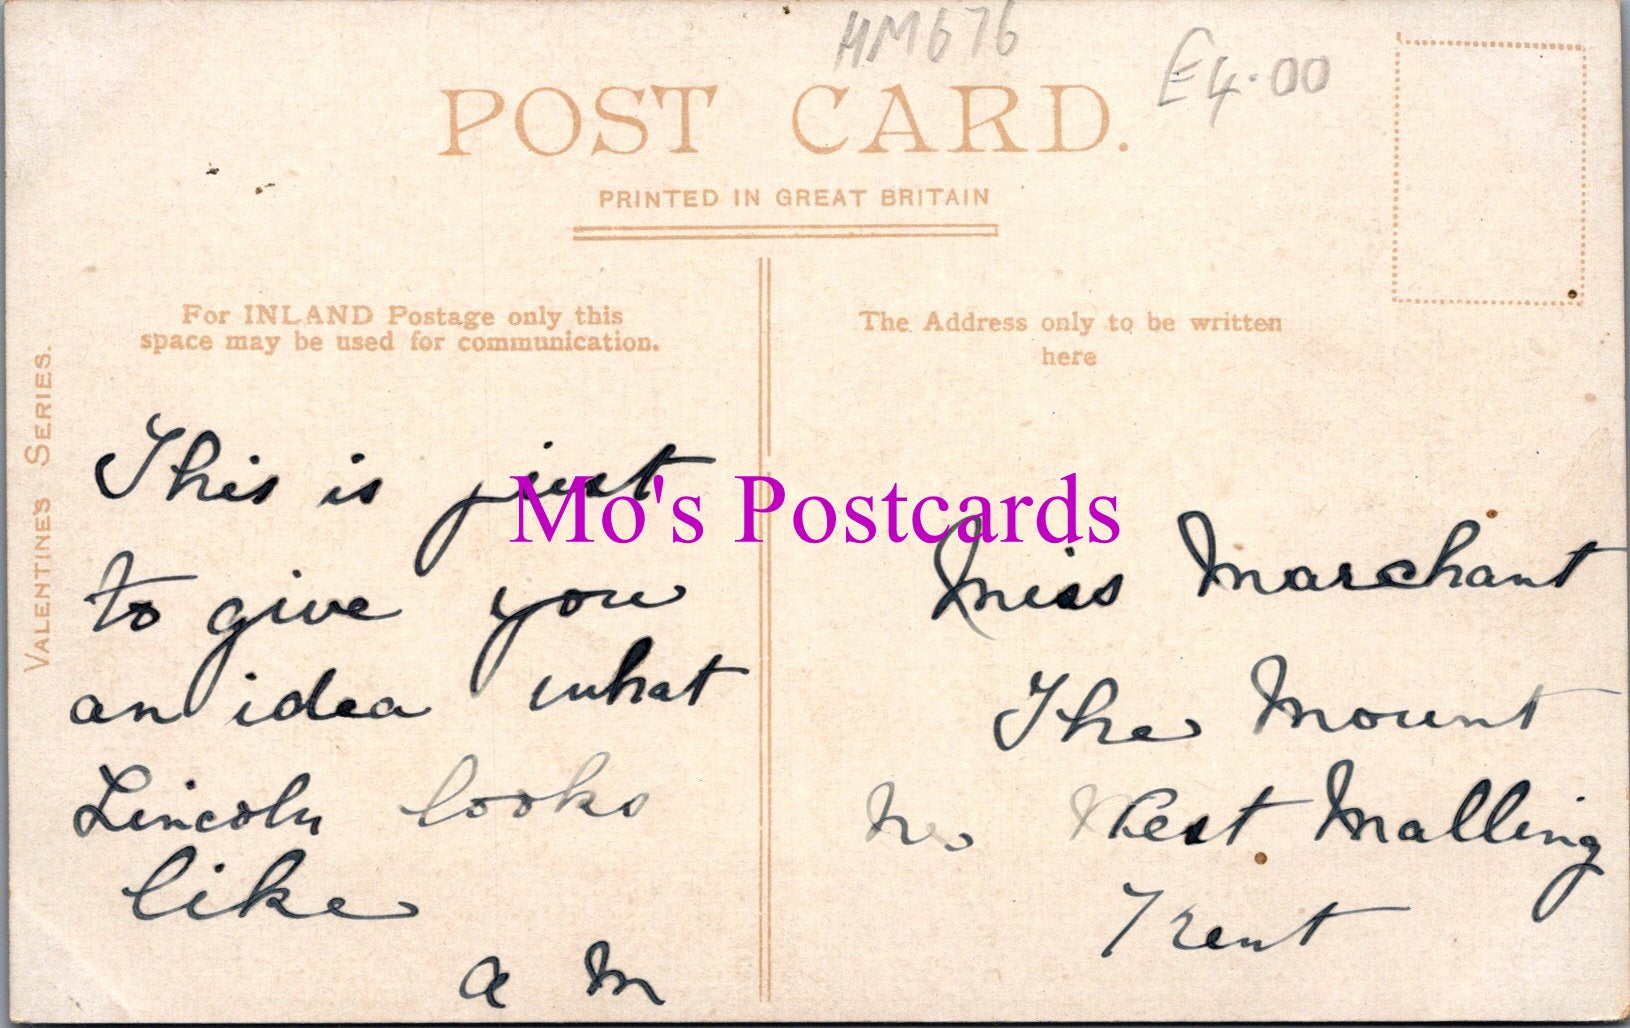 HM676
£4.00
POST CARD.
PRINTED IN GREAT BRITAIN
For INLAND Postage only this
space may be used for communication.
The Address only to be written
here
VALENTINES SERIES.
This is just
to give you
an idea what
Lincoln looks
like
a m
Mo's Postcards
Miss Marchant
The Mount
Nr West Malling
Kent